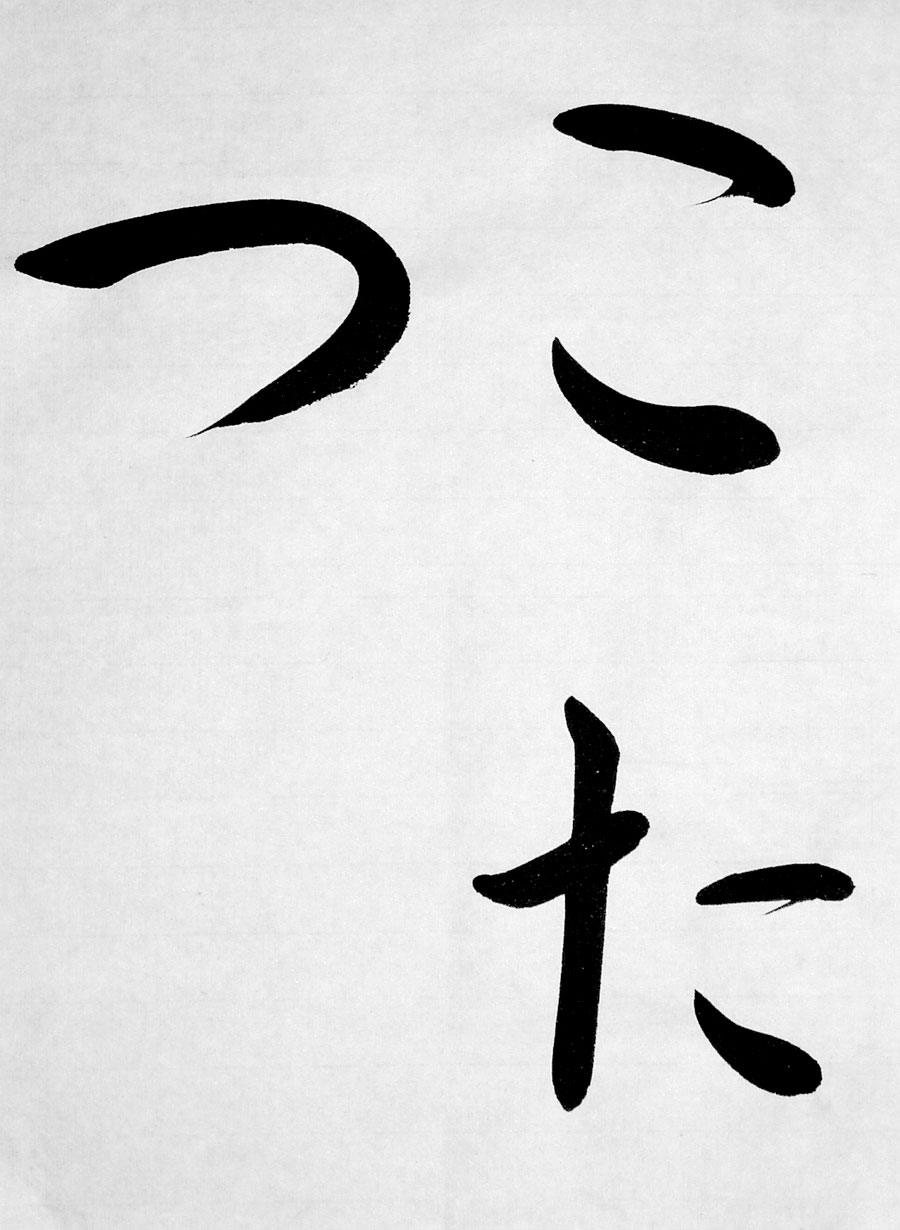 こた
つ